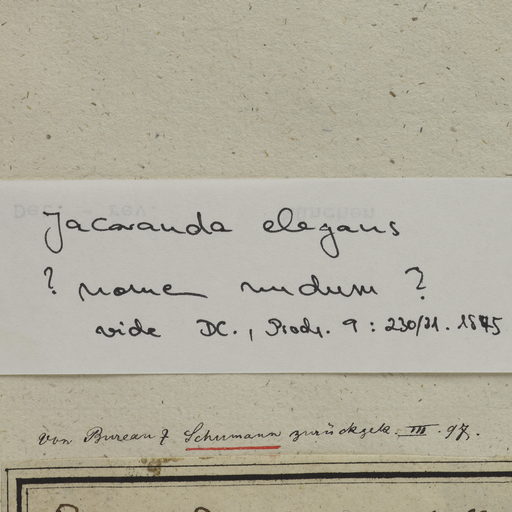 Jacaranda elegans
? nomen nudum ?
vide DC., Prodr. 9 : 230/31. 1845
von Bureau & Schumann zurückgek. III. 97.